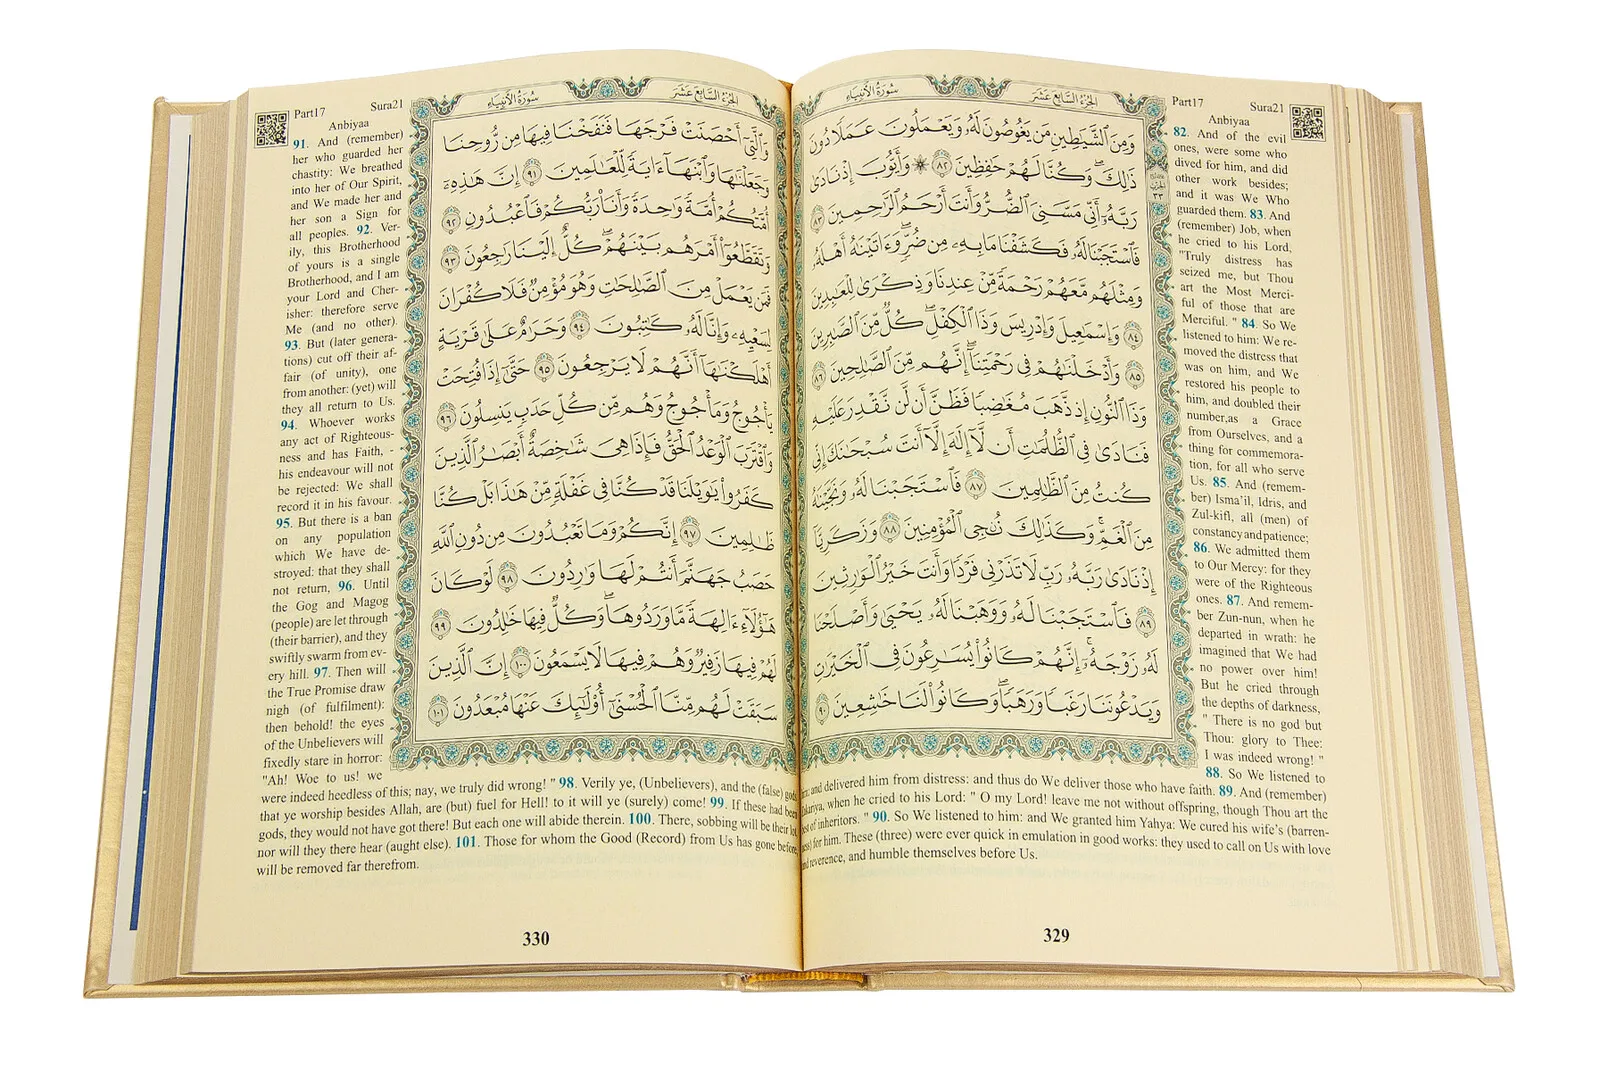 سُورَةُ الأَنبيَاء الجُزءُ السَّابِعَ عَشَرَ
وَمِنَ ٱلشَّيَٰطِينِ مَن يَغُوصُونَ لَهُۥ وَيَعْمَلُونَ عَمَلًا دُونَ
ذَٰلِكَۖ وَكُنَّا لَهُمْ حَٰفِظِينَ ٨٢ ۞ وَأَيُّوبَ إِذْ نَادَىٰ
رَبَّهُۥٓ أَنِّى مَسَّنِىَ ٱلضُّرُّ وَأَنتَ أَرْحَمُ ٱلرَّٰحِمِينَ ٨٣
فَٱسْتَجَبْنَا لَهُۥ فَكَشَفْنَا مَا بِهِۦ مِن ضُرٍّۖ وَءَاتَيْنَٰهُ أَهْلَهُۥ
وَمِثْلَهُم مَّعَهُمْ رَحْمَةً مِّنْ عِندِنَا وَذِكْرَىٰ لِلْعَٰبِدِينَ
٨٤ وَإِسْمَٰعِيلَ وَإِدْرِيسَ وَذَا ٱلْكِفْلِۖ كُلٌّ مِّنَ ٱلصَّٰبِرِينَ
٨٥ وَأَدْخَلْنَٰهُمْ فِى رَحْمَتِنَآۖ إِنَّهُم مِّنَ ٱلصَّٰلِحِينَ ٨٦
وَذَا ٱلنُّونِ إِذ ذَّهَبَ مُغَٰضِبًا فَظَنَّ أَن لَّن نَّقْدِرَ عَلَيْهِ
فَنَادَىٰ فِى ٱلظُّلُمَٰتِ أَن لَّآ إِلَٰهَ إِلَّآ أَنتَ سُبْحَٰنَكَ إِنِّى
كُنتُ مِنَ ٱلظَّٰلِمِينَ ٨٧ فَٱسْتَجَبْنَا لَهُۥ وَنَجَّيْنَٰهُ
مِنَ ٱلْغَمِّۚ وَكَذَٰلِكَ نُۨجِى ٱلْمُؤْمِنِينَ ٨٨ وَزَكَرِيَّآ
إِذْ نَادَىٰ رَبَّهُۥ رَبِّ لَا تَذَرْنِى فَرْدًا وَأَنتَ خَيْرُ ٱلْوَٰرِثِينَ
٨٩ فَٱسْتَجَبْنَا لَهُۥ وَوَهَبْنَا لَهُۥ يَحْيَىٰ وَأَصْلَحْنَا
لَهُۥ زَوْجَهُۥٓۚ إِنَّهُمْ كَانُوا۟ يُسَٰرِعُونَ فِى ٱلْخَيْرَٰتِ
وَيَدْعُونَنَا رَغَبًا وَرَهَبًاۖ وَكَانُوا۟ لَنَا خَٰشِعِينَ ٩٠
Part17 Sura21
Anbiyaa
82. And of the evil
ones, were some who
dived for him, and did
other work besides;
and it was We Who
guarded them. 83. And
(remember) Job, when
he cried to his Lord,
"Truly distress has
seized me, but Thou
art the Most Merci-
ful of those that are
Merciful. " 84. So We
listened to him: We re-
moved the distress that
was on him, and We
restored his people to
him, and doubled their
number,as a Grace
from Ourselves, and a
thing for commemora-
tion, for all who serve
Us. 85. And (remem-
ber) Isma'il, Idris, and
Zul-kifl, all (men) of
constancy and patience;
86. We admitted them
to Our Mercy: for they
were of the Righteous
ones. 87. And remem-
ber Zun-nun, when he
departed in wrath: he
imagined that We had
no power over him!
But he cried through
the depths of darkness,
" There is no god but
Thou: glory to Thee:
I was indeed wrong! "
88. So We listened to
and delivered him from distress: and thus do We deliver those who have faith. 89. And (remember)
when he cried to his Lord: " O my Lord! leave me not without offspring, though Thou art the
of inheritors. " 90. So We listened to him: and We granted him Yahya: We cured his wife's (barren-
for him. These (three) were ever quick in emulation in good works: they used to call on Us with love
and reverence, and humble themselves before Us.
329
سُورَةُ الأَنبيَاء الجُزءُ السَّابِعَ عَشَرَ
وَٱلَّتِىٓ أَحْصَنَتْ فَرْجَهَا فَنَفَخْنَا فِيهَا مِن رُّوحِنَا
وَجَعَلْنَٰهَا وَٱبْنَهَآ ءَايَةً لِّلْعَٰلَمِينَ ٩١ إِنَّ هَٰذِهِۦٓ
أُمَّتُكُمْ أُمَّةً وَٰحِدَةً وَأَنَا۠ رَبُّكُمْ فَٱعْبُدُونِ ٩٢
وَتَقَطَّعُوٓا۟ أَمْرَهُم بَيْنَهُمْۖ كُلٌّ إِلَيْنَا رَٰجِعُونَ ٩٣
فَمَن يَعْمَلْ مِنَ ٱلصَّٰلِحَٰتِ وَهُوَ مُؤْمِنٌ فَلَا كُفْرَانَ
لِسَعْيِهِۦ وَإِنَّا لَهُۥ كَٰتِبُونَ ٩٤ وَحَرَٰمٌ عَلَىٰ قَرْيَةٍ
أَهْلَكْنَٰهَآ أَنَّهُمْ لَا يَرْجِعُونَ ٩٥ حَتَّىٰٓ إِذَا فُتِحَتْ
يَأْجُوجُ وَمَأْجُوجُ وَهُم مِّن كُلِّ حَدَبٍ يَنسِلُونَ ٩٦
وَٱقْتَرَبَ ٱلْوَعْدُ ٱلْحَقُّ فَإِذَا هِىَ شَٰخِصَةٌ أَبْصَٰرُ ٱلَّذِينَ
كَفَرُوا۟ يَٰوَيْلَنَا قَدْ كُنَّا فِى غَفْلَةٍ مِّنْ هَٰذَا بَلْ كُنَّا
ظَٰلِمِينَ ٩٧ إِنَّكُمْ وَمَا تَعْبُدُونَ مِن دُونِ ٱللَّهِ
حَصَبُ جَهَنَّمَ أَنتُمْ لَهَا وَٰرِدُونَ ٩٨ لَوْ كَانَ
هَٰٓؤُلَآءِ ءَالِهَةً مَّا وَرَدُوهَاۖ وَكُلٌّ فِيهَا خَٰلِدُونَ ٩٩
لَهُمْ فِيهَا زَفِيرٌ وَهُمْ فِيهَا لَا يَسْمَعُونَ ١٠٠ إِنَّ ٱلَّذِينَ
سَبَقَتْ لَهُم مِّنَّا ٱلْحُسْنَىٰٓ أُو۟لَٰٓئِكَ عَنْهَا مُبْعَدُونَ ١٠١
Part17 Sura21
Anbiyaa
91. And (remember)
her who guarded her
chastity: We breathed
into her of Our Spirit,
and We made her and
her son a Sign for
all peoples. 92. Ver-
ily, this Brotherhood
of yours is a single
Brotherhood, and I am
your Lord and Cher-
isher: therefore serve
Me (and no other).
93. But (later genera-
tions) cut off their af-
fair (of unity), one
from another: (yet) will
they all return to Us.
94. Whoever works
any act of Righteous-
ness and has Faith, -
his endeavour will not
be rejected: We shall
record it in his favour.
95. But there is a ban
on any population
which We have de-
stroyed: that they shall
not return, 96. Until
the Gog and Magog
(people) are let through
(their barrier), and they
swiftly swarm from ev-
ery hill. 97. Then will
the True Promise draw
nigh (of fulfilment):
then behold! the eyes
of the Unbelievers will
fixedly stare in horror:
"Ah! Woe to us! we
were indeed heedless of this; nay, we truly did wrong! " 98. Verily ye, (Unbelievers), and the (false) gods
that ye worship besides Allah, are (but) fuel for Hell! to it will ye (surely) come! 99. If these had been
gods, they would not have got there! But each one will abide therein. 100. There, sobbing will be their lot,
nor will they there hear (aught else). 101. Those for whom the Good (Record) from Us has gone before,
will be removed far therefrom.
330